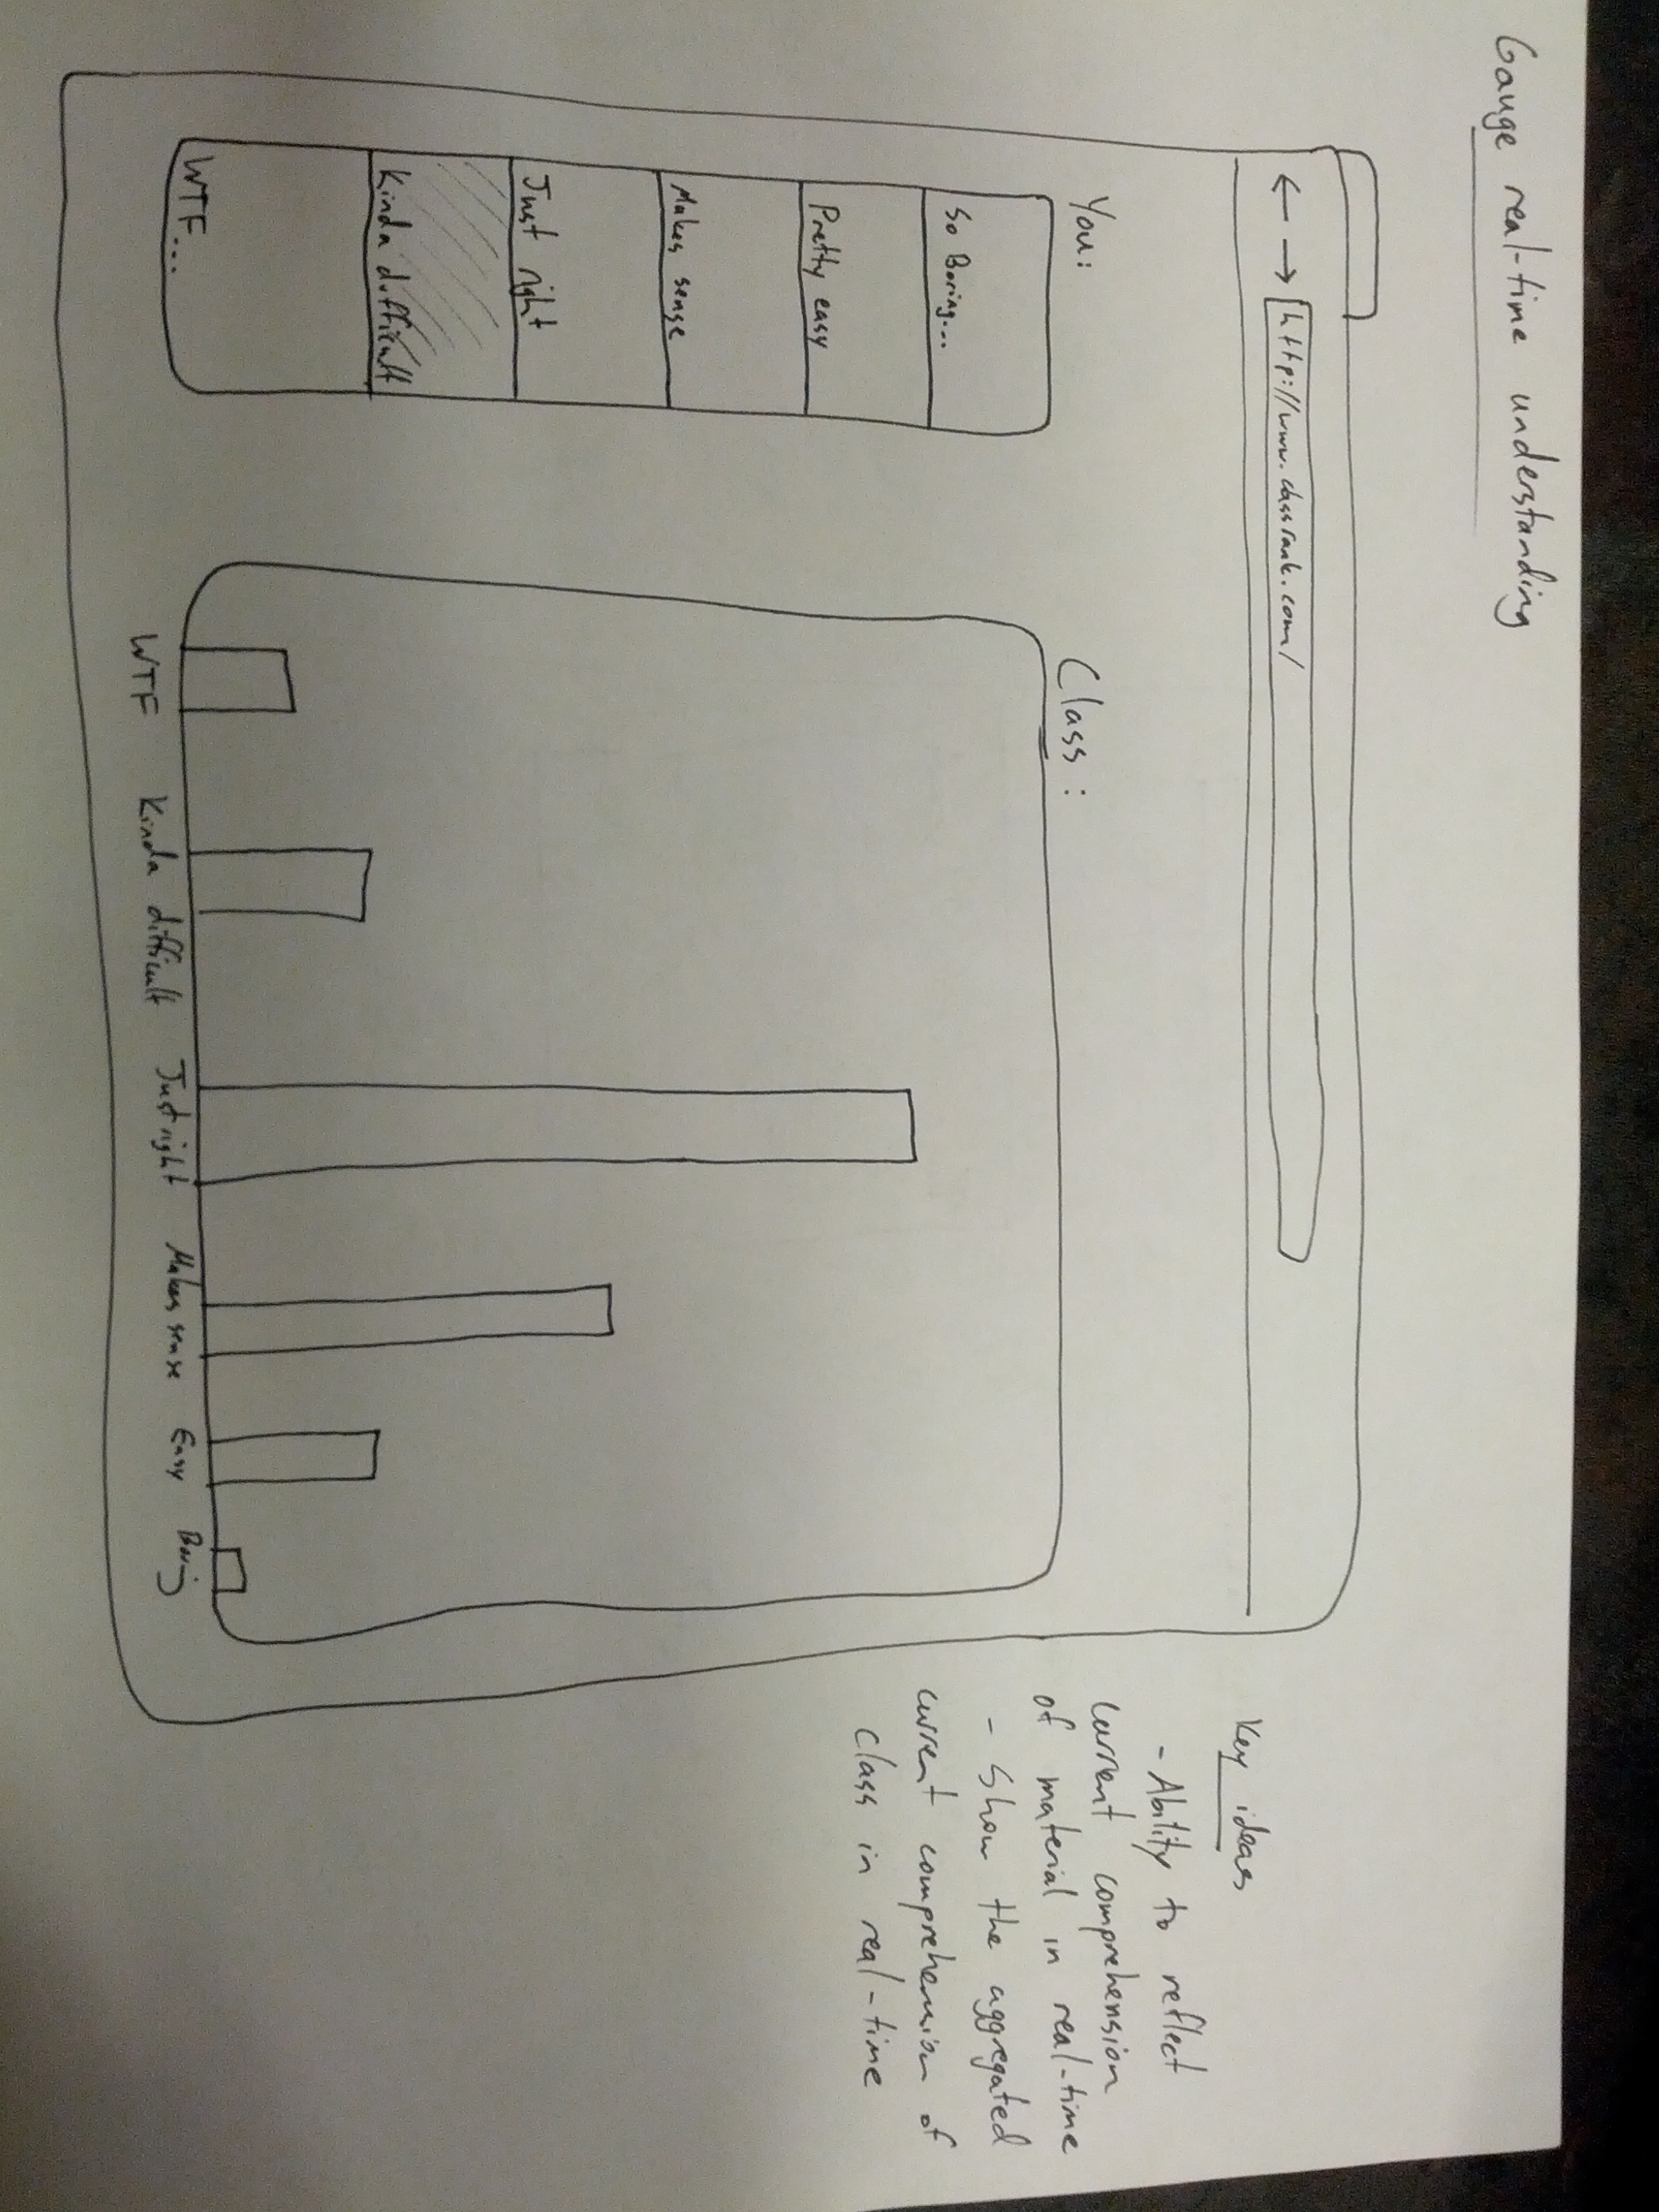 Gauge real-time understanding
← → http://www.classrank.com/
You:
So Boring...
Pretty easy
Makes sense
Just right
Kinda difficult
WTF...
Class:
WTF Kinda difficult Just right Makes sense Easy Boring
Key ideas
- Ability to reflect
current comprehension
of material in real-time
- Show the aggregated
current comprehension of
class in real-time